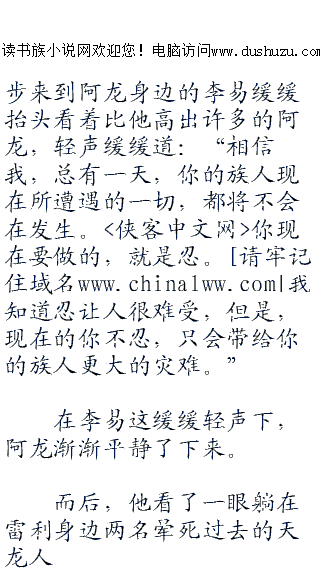 读书族小说网欢迎您！电脑访问www.dushuzu.com
步来到阿龙身边的李易缓缓
抬头看着比他高出许多的阿
龙，轻声缓缓道：“相信
我，总有一天，你的族人现
在所遭遇的一切，都将不会
在发生。<侠客中文网>你现
在要做的，就是忍。[请牢记
住域名www.china1ww.com|我
知道忍让人很难受，但是，
现在的你不忍，只会带给你
的族人更大的灾难。”
在李易这缓缓轻声下，
阿龙渐渐平静了下来。
而后，他看了一眼躺在
雷利身边两名晕死过去的天
龙人